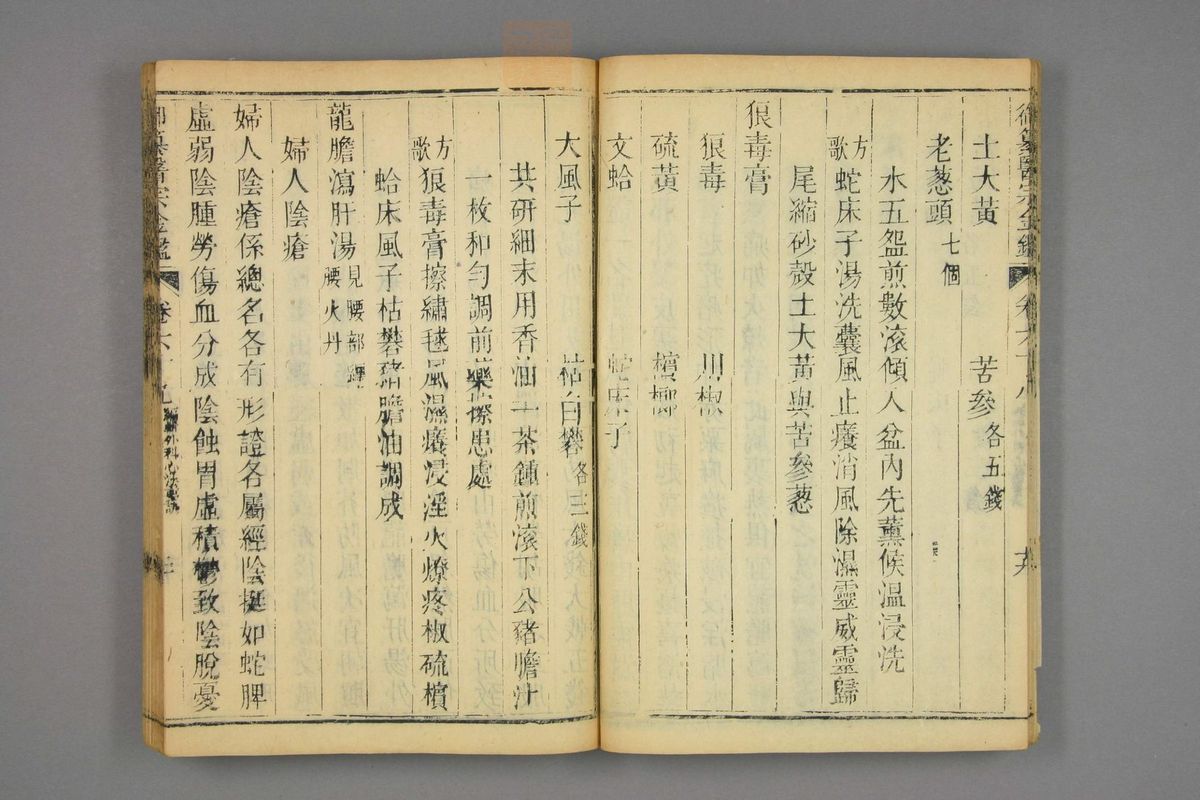 御纂醫宗金鑑 卷六十八
土大黃 苦參各五錢
老葱頭七個
水五盌煎數滾傾入盆內先薰候温浸洗
方歌 蛇床子湯洗囊風止癢消風除濕靈威靈歸
尾縮砂殼土大黃與苦參葱
狼毒膏
狼毒 川椒
硫黃 檳榔
文蛤 蛇床子
大風子 枯白礬各三錢
共研細末用香油一茶鍾煎滾下公豬膽汁
一枚和勻調前藥擦患處
方歌 狼毒膏擦繡毬風濕癢浸淫火燎疼椒硫檳
蛤床風子枯礬豬膽油調成
龍膽瀉肝湯見腰部纏腰火丹
婦人陰瘡
婦人陰瘡係總名各有形證各屬經陰挺如蛇脾
虛弱陰腫勞傷血分成陰蝕胃虛積鬱致陰脫憂
御纂醫宗金鑑 卷六十九